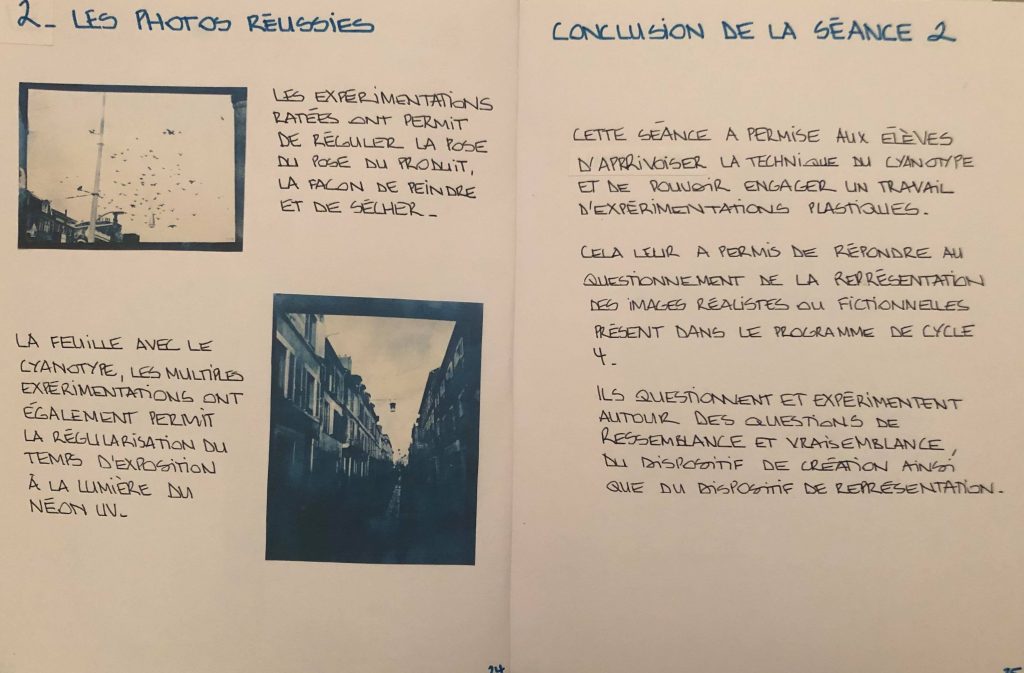 2_ LES PHOTOS RÉUSSIES
LES EXPÉRIMENTATIONS
RATÉES ONT PERMIT
DE RÉGULER LA POSE
DU POSE DU PRODUIT,
LA FAÇON DE PEINDRE
ET DE SÉCHER_
LA FEUILLE AVEC LE
CYANOTYPE, LES MULTIPLES
EXPÉRIMENTATIONS ONT
ÉGALEMENT PERMIT
LA RÉGULARISATION DU
TEMPS D'EXPOSITION
À LA LUMIÈRE DU
NÉON UV_
24
CONCLUSION DE LA SÉANCE 2
CETTE SÉANCE A PERMISE AUX ÉLÈVES
D'APPRIVOISER LA TECHNIQUE DU CYANOTYPE
ET DE POUVOIR ENGAGER UN TRAVAIL
D'EXPÉRIMENTATIONS PLASTIQUES.
CELA LEUR A PERMIS DE RÉPONDRE AU
QUESTIONNEMENT DE LA REPRÉSENTATION
DES IMAGES RÉALISTES OU FICTIONNELLES
PRÉSENT DANS LE PROGRAMME DE CYCLE
4_
ILS QUESTIONNENT ET EXPÉRIMENTENT
AUTOUR DES QUESTIONS DE
RESSEMBLANCE ET VRAISEMBLANCE,
DU DISPOSITIF DE CRÉATION AINSI
QUE DU DISPOSITIF DE REPRÉSENTATION.
25